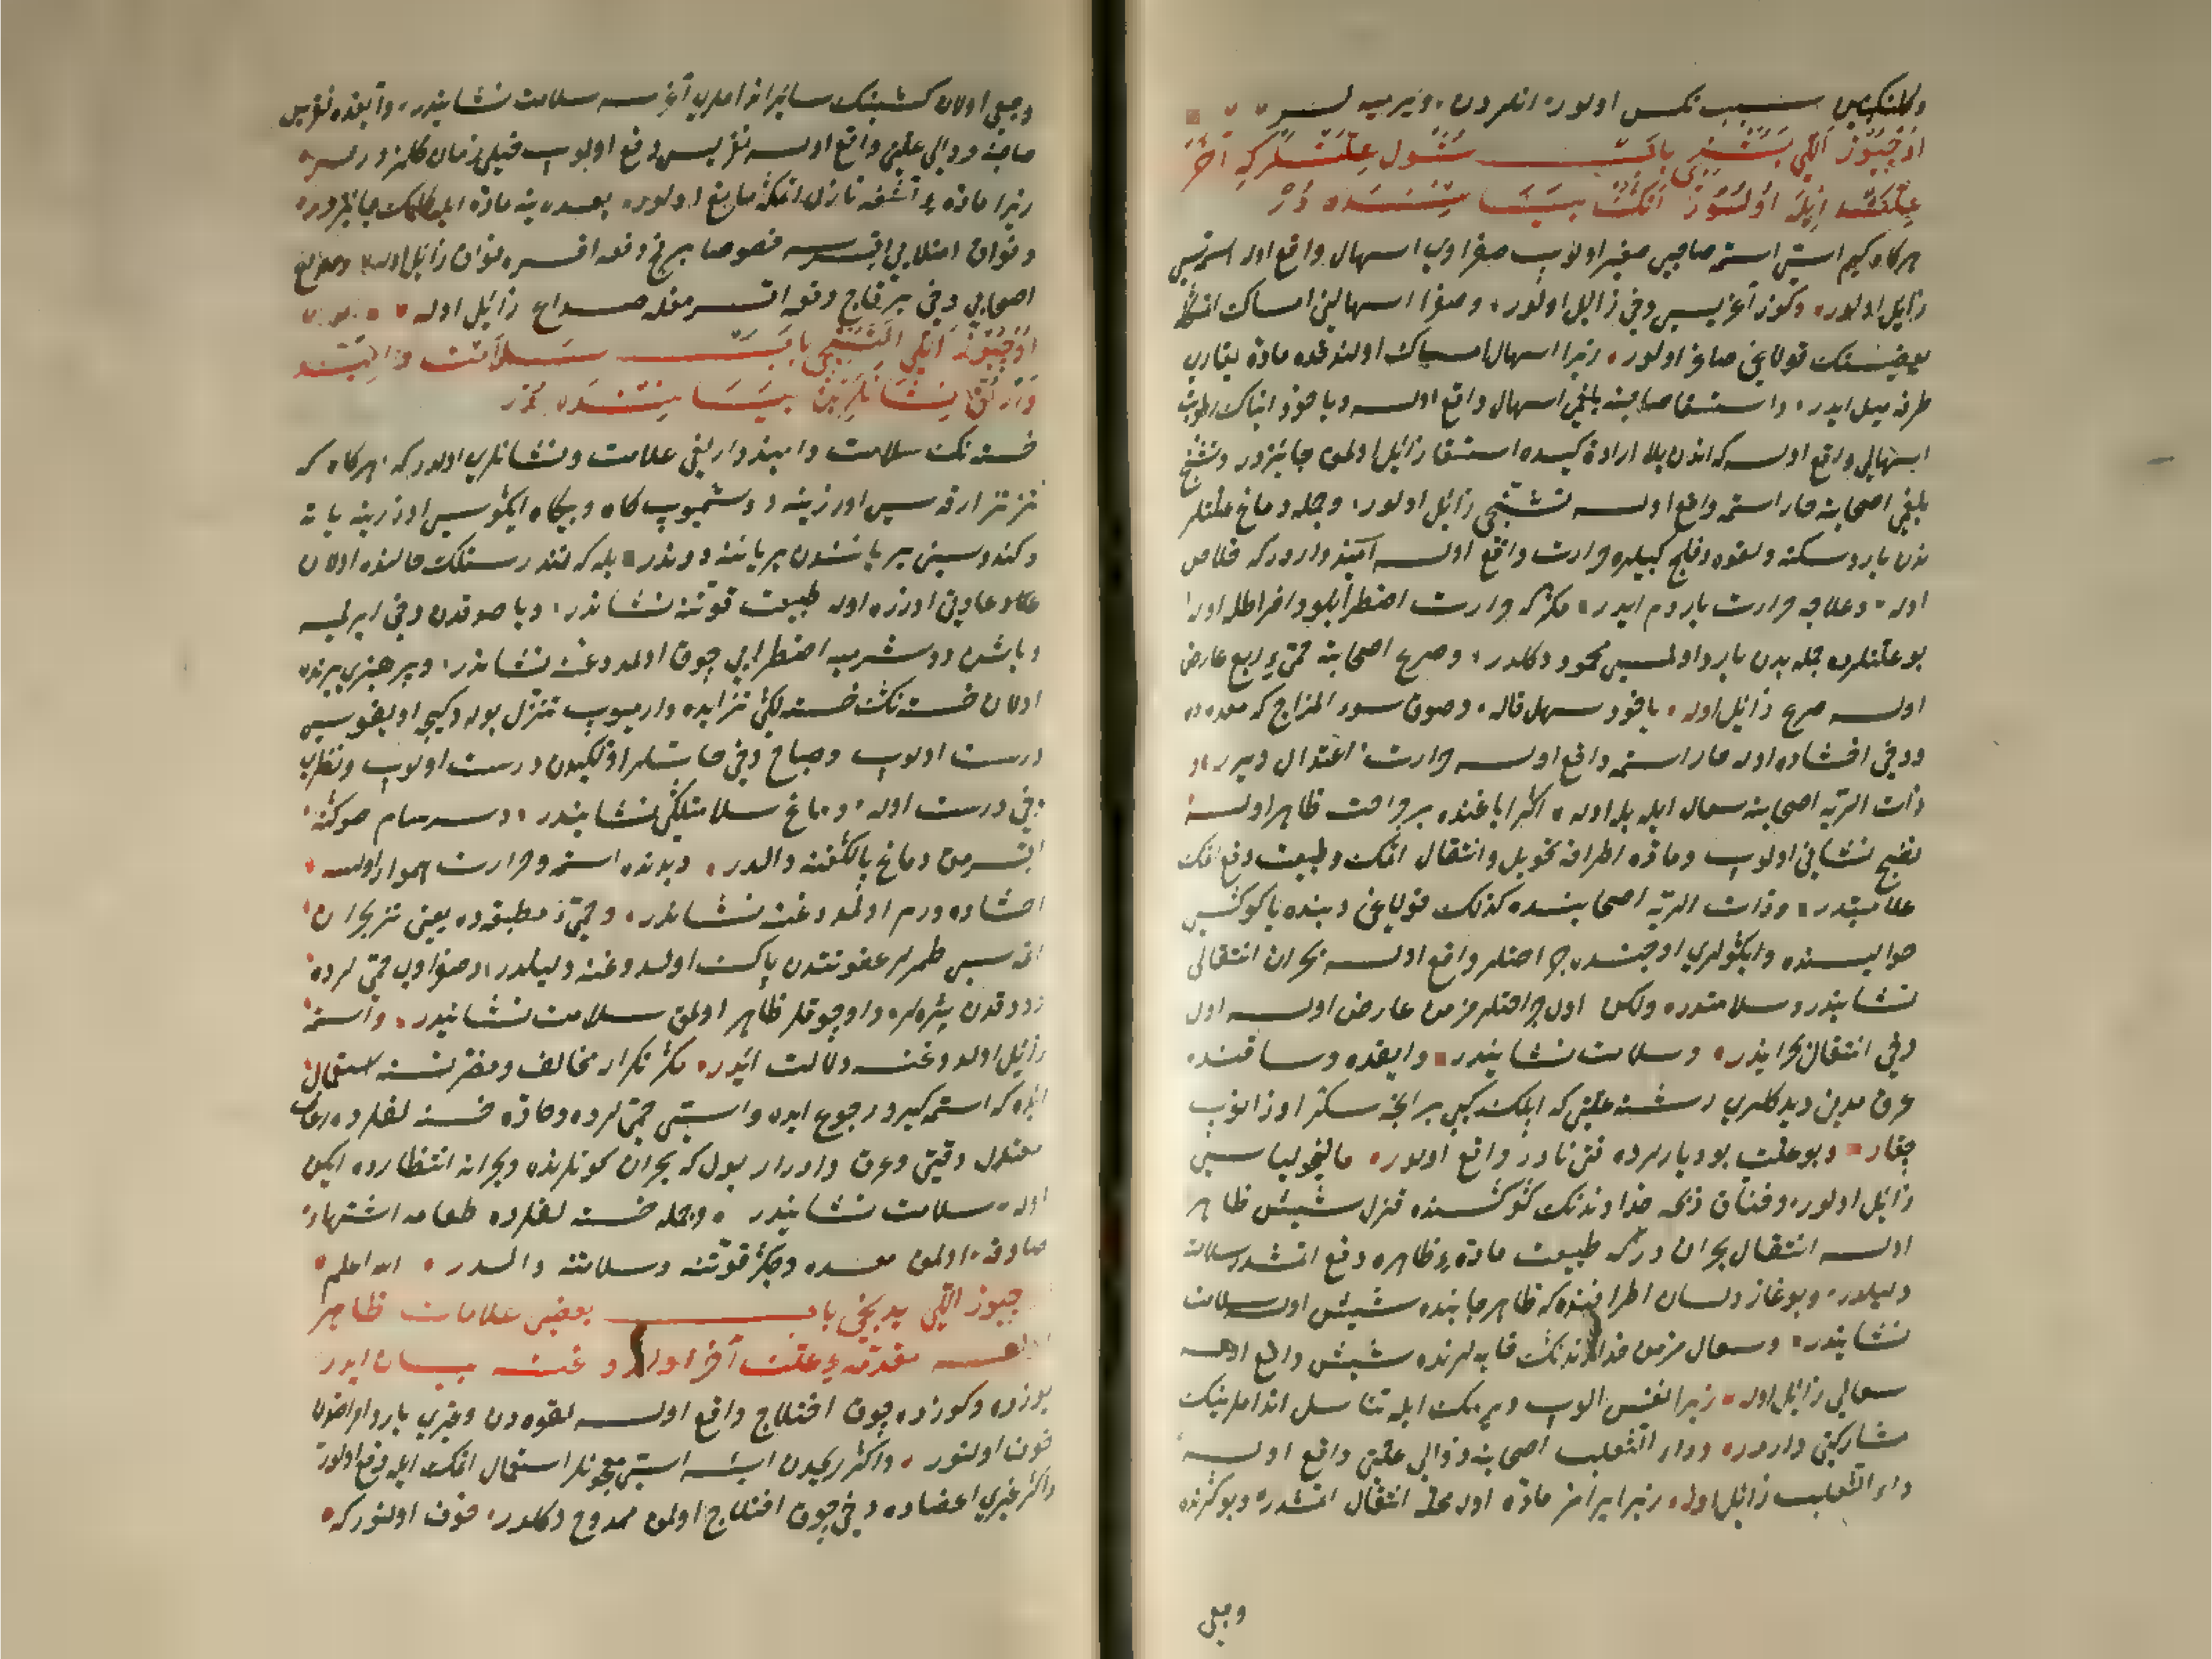 سبب نكس اولور انلردن ويريه لر
اوچيوز اللی بشنجی باب شول علتلر كه آخر
علتله ايله اولنور انك بياننده در
هر كاه كيم استی استمه صاحبی اولوب صفراوی اسهال واقع اوله استمه سی
زائل اولور وكوز آغريسی دخی زائل اولور وصفرا اسهالين امساك اتمك
بعضيسنك قولاغی صاغر اولور زيرا اسهال امساك اولندقده ماده يوقاری
طرفه ميل ايدر واستسقا صاحبنه بلغمی اسهال واقع اولسه
اسهالی واقع اولسه كه اندن بلا اراده كيده استسقا زائل اولمق جائزدر وتشنج
بلغمی اصحابنه حار استمه واقع اولسه تشنجی زائل اولور وجمله دماغ علتلر
بدن بارد وسكته ولقوه وفلج كبيلره حرارت واقع اولسه اميد واردر كه خلاص
اوله وعلاجه حرارت ياردم ايدر مكر كه حرارت اضطرابلو وافراطله اوله
بو علتلرده جمله بدن بارد اولمسی محمود دكلدر وصرع اصحابنه حمی ربع عارض
اولسه صرع زائل اوله ياخود سهل قاله وصوق سوء المزاج كه معده ده
ودخی احشاده اوله حار استمه واقع اولسه حرارت اعتدال ويرر و
ذات الريه اصحابنه سعال ايله بله اوله اكر اياغنده بر جراحت ظاهر اولسه
نضج نشانی اولوب وماده اطرافه تحويل وانتقال اتمك وطبيعت دفع اتمك
علامتيدر وذات الريه اصحابنده كذلك قولاغی ديبنده يا كوكسی
حواليسنده وايكولری اوجنده جراحتلر واقع اولسه بحران انتقالی
نشانيدر وسلامتدر ولكن اول جراحتلر مزمن عارض اولسه اول
دخی انتقال بحرانيدر وسلامت نشانيدر وايقده وساقنده
عرق مدين ديدكلری رشته علتی كه ايپلك كبی بر اينجه سكر اوزانوب
چقار وبو علت بو ديارلرده قتی نادر واقع اولور ماليخولياسی
زائل اولور وخناق زحمه خداوندنك كوكسنده قزل شيش ظاهر
اولسه انتقال بحراندر كه طبيعت ماده يی ظاهره دفع اتمشدر سلامت
دليلدر وبوغاز ولسان اطرافنده كه ظاهر جانبنده شيش اولسه سلامت
نشانيدر وسعال مزمن خداوندنك خايه لرنده شيش واقع اولسه
سعالی زائل اوله زيرا نفس الوب ويرمك ايله تناسل انداملرينك
مشاركتی واردر وداء الثعلب اصحابنه دوالی علتی واقع اولسه
داء الثعلب زائل اوله زيرا ماده اول محله انتقال اتمشدر
وجعی
وجعی اولان كشينك سائر انداملری آغرسه سلامت نشانيدر وايقده نقريس
صاحبنه دوالی علتی واقع اولسه نقريس دفع اولوب خيلی زمان كلمز ديرلر
زيرا ماده يی اشغه نازل اتمكه مانع اولور بعده ينه ماده ايله كلمك جائزدر
وفواق امتلايی خصوصا بر قچ دفعه اقسره فواق زائل اوله وصداع
اصحابی دخی بر قاچ دفعه اقسرمغله صداع زائل اوله
اوچيوز اللی التنجی باب سلامت واميد
وارلق نشانلرينك بياننده در
خسته نك سلامت واميدوارلغی علامت ونشانلری اولدر كه هر كاه كه
تز تز ارقه سی اوزرينه دوشميوب كاه وبيكاه ايكوسی اوزرينه ياته
وكندوسنی بر ياننندن بر يانه دوندر بله كه تندرستلك حالنده اولان
عادتی اوزره اوله طبيعت قوتنه نشاندر ويا صوقدن دخی
وباشن دوشريه اضطرابی چوق اولمدوغنه نشاندر وپرهيزی يرنده
اولان خسته نك خسته لكی تزايده وارميوب تنزل بوله وكيجه اويقوسی
درست اولوب وصباح دخی درست اولوب ونظری
دخی درست اوله دماغ سلامتلكی نشانيدر وسرسام صوكنه
اقسرمق دماغ پاكلكنه دالدر وبدنده استمه وحرارت هموار اولسه
احشاده ورم اولمدوغنه نشاندر وحمی مطبقه ده يعنی تز بحران
اتمه سی طمرلر عفونتدن پاك اولدوغنه دليلدر وصفراوی حمی لرده
دوداقدن بثره لر واوچوقلر ظاهر اولمق سلامت نشانيدر واستمه
زائل اولدوغنه دلالت ايدر مكر تكرار مخالف ومضر نسنه استعمال
ايده كه استمه كيرو رجوع ايده واستی حمی لرده وحاده خسته لقلرده رعاف
معتدل وقتی وعرق وادرار بول كه بحران كونلرنده وبحرانه انتظارده ايكن
اوله سلامت نشانيدر وجمله خسته لقلرده طعامه اشتهاء
صادق اولمق معده وجكر قوتنه وسلامتنه دالدر الله اعلم
اوچيوز اللی يدنجی باب بعضی علامات ظاهر
اولسه مقدمه علت آخر اولدوغنه بيان ايدر
يوزده وكوزده چوق اختلاج واقع اولسه لقوه دن وغيری بارد امراضدن
خوف اولنور واكثر ريحدن ايسه استی معجونلر استعمال اتمك ايله دفع اولور
واكر غيری اعضاده دخی چوق اختلاج اولمق ممدوح دكلدر خوف اولنور كه